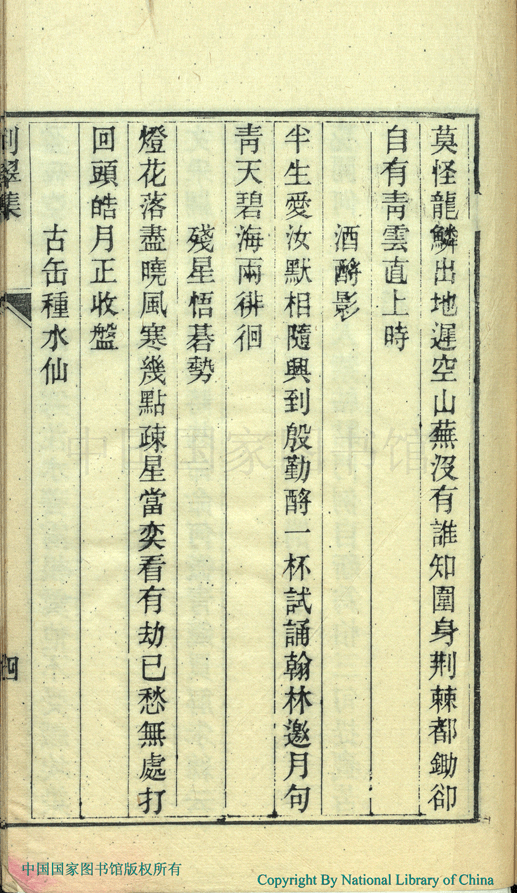 莫怪龍鱗出地遲空山蕪沒有誰知圍身荆棘都鋤卻
自有靑雲直上時
酒酹影
半生愛汝默相隨興到殷勤酹一杯試誦翰林邀月句
靑天碧海兩徘徊
殘星悟碁勢
燈花落盡曉風寒幾點疎星當奕看有劫已愁無處打
回頭皓月正收盤
古缶種水仙
翠集
四
中国国家图书馆
中国国家图书馆版权所有
Copyright By National Library of China